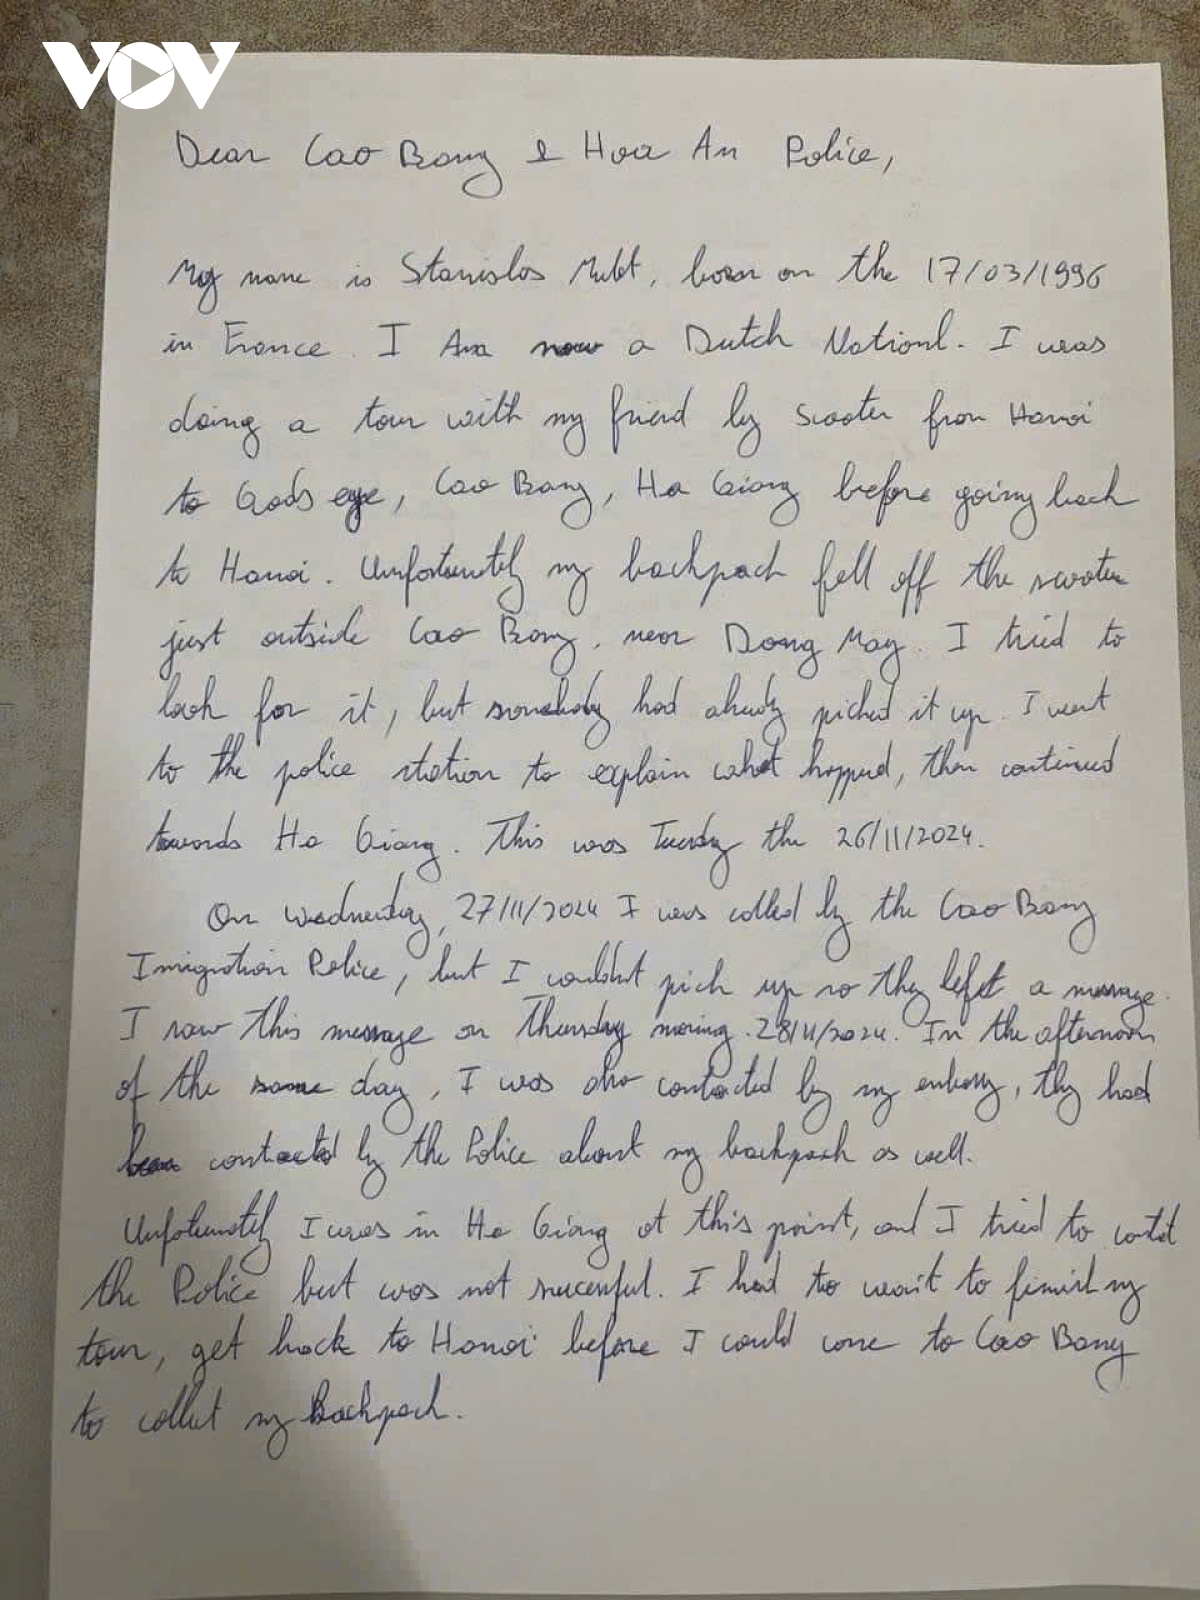 VOV
Dear Cao Bang & Hoa An Police,
My name is Stanislas, born on the 17/03/1996
in France. I Am now a Dutch National. I was
doing a tour with my friend by scooter from Hanoi
to Gods eye, Cao Bang, Ha Giang before going back
to Hanoi. Unfortunately my backpack fell off the scooter
just outside Cao Bang, near Dong May. I tried to
look for it, but somebody had already picked it up. I went
to the police station to explain what happened, then continued
towards Ha Giang. This was Tuesday the 26/11/2024.
On Wednesday, 27/11/2024 I was called by the Cao Bang
Imigration Police, but I couldn't pick up so they left a message.
I saw this message on Thursday morning. 28/11/2024. In the afternoon
of the same day, I was also contacted by my embassy, they had
been contacted by the Police about my backpack as well.
Unfortunately I was in Ha Giang at this point, and I tried to contact
the Police but was not successful. I had to wait to finish my
tour, get back to Hanoi before I could come to Cao Bang
to collect my Backpack.